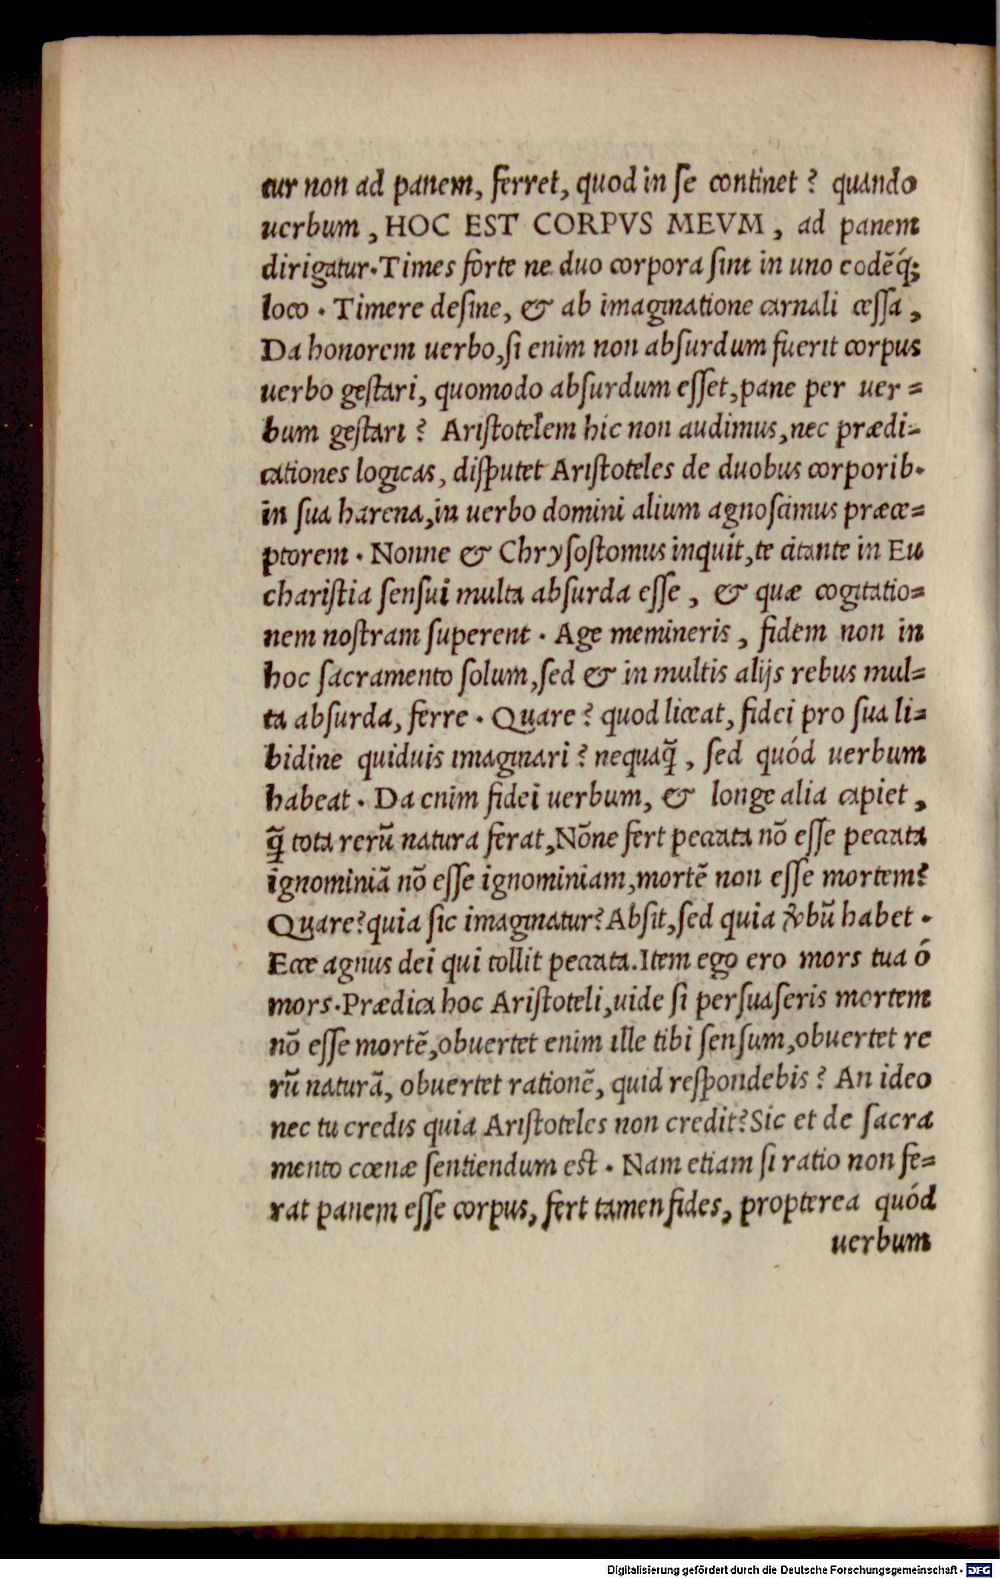 cur non ad panem, ferret, quod in se continet? quando
uerbum, HOC EST CORPVS MEVM, ad panem
dirigatur. Times forte ne duo corpora sint in uno eodẽq́;
loco. Timere desine, & ab imaginatione carnali cessa,
Da honorem uerbo, si enim non absurdum fuerit corpus
uerbo gestari, quomodo absurdum esset, pane per uer=
bum gestari? Aristotelem hic non audimus, nec prædi=
cationes logicas, disputet Aristoteles de duobus corporib.
in sua harena, in uerbo domini alium agnoscimus præce=
ptorem. Nonne & Chrysostomus inquit, te citante in Eu
charistia sensui multa absurda esse, & quæ cogitatio=
nem nostram superent. Age memineris, fidem non in
hoc sacramento solum, sed & in multis alijs rebus mul=
ta absurda, ferre. Quare? quod liceat, fidei pro sua li=
bidine quiduis imaginari? nequaq̃, sed quód uerbum
habeat. Da enim fidei uerbum, & longe alia capiet,
q̃ tota rerũ natura ferat, Nõne fert peccata nõ esse peccata
ignominiã nõ esse ignominiam, mortẽ non esse mortem?
Quare? quia sic imaginatur? Absit, sed quia ỽbũ habet.
Ecce agnus dei qui tollit peccata. Item ego ero mors tua ó
mors. Prædica hoc Aristoteli, uide si persuaseris mortem
nõ esse mortẽ, obuertet enim ille tibi sensum, obuertet re
rũ naturã, obuertet rationẽ, quid respondebis? An ideo
nec tu credis quia Aristoteles non credit? Sic et de sacra
mento cœnæ sentiendum est. Nam etiam si ratio non fe=
rat panem esse corpus, fert tamen fides, propterea quód
uerbum
Digitalisierung gefördert durch die Deutsche Forschungsgemeinschaft - DFG